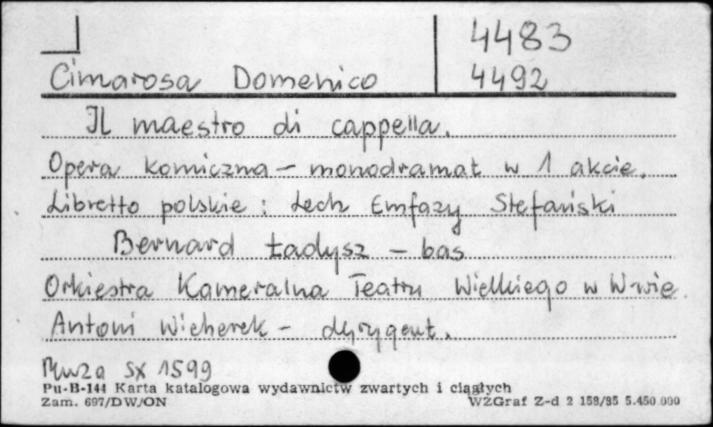 4483
Cimarosa Domenico 4492
Il maestro di cappella.
Opera komiczna – monodramat w 1 akcie.
Libretto polskie : Lech Emfazy Stefański
Bernard Ładysz – bas
Orkiestra Kameralna Teatru Wielkiego w W-wie.
Antoni Wicherek – dyrygent.
Muza SX 1599
Pu-B-144 Karta katalogowa wydawnictw zwartych i ciągłych
Zam. 697/DW/ON WZGraf Z-d 2 158/85 5.450.000